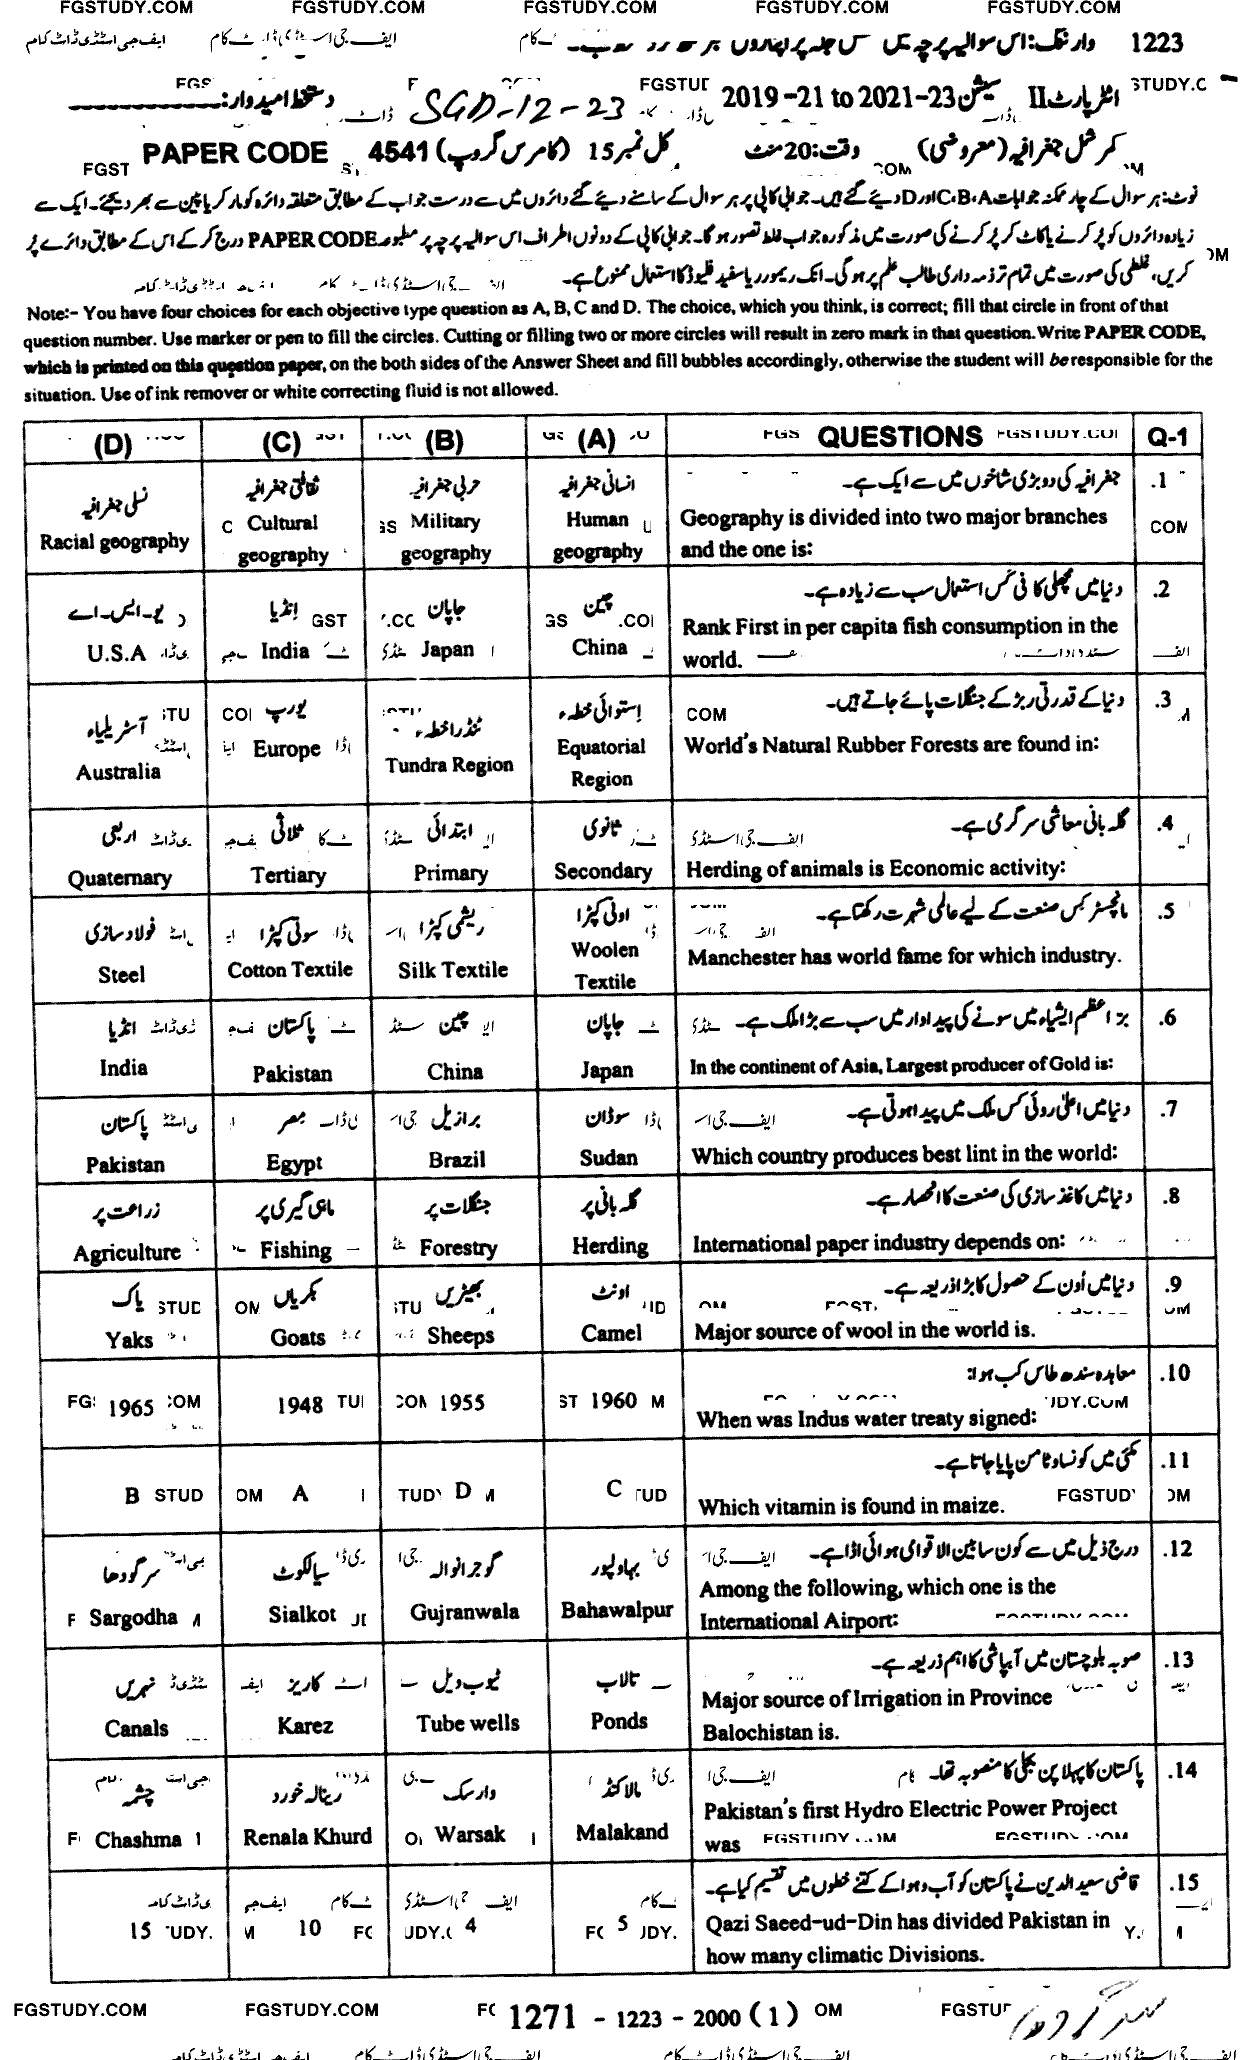 FGSTUDY.COM FGSTUDY.COM FGSTUDY.COM FGSTUDY.COM FGSTUDY.COM
1223 وارننگ: اس سوالیہ پرچہ میں
انٹر پارٹ II سیشن 2019-21 to 2021-23 SGD-12-23 دستخط امیدوار:
کمرشل جغرافیہ (معروضی) وقت: 20 منٹ کل نمبر 15 (کامرس گروپ) PAPER CODE 4541
نوٹ: ہر سوال کے چار ممکنہ جوابات A، B، C اور D دیئے گئے ہیں۔ جوابی کاپی پر ہر سوال کے سامنے دیے گئے دائروں میں سے درست جواب کے مطابق متعلقہ دائرہ کو مارکر یا پین سے بھر دیجئے۔ ایک سے
زیادہ دائروں کو پُر کرنے یا کاٹ کر پُر کرنے کی صورت میں مذکورہ جواب غلط تصور ہوگا۔ جوابی کاپی کے دونوں اطراف اس سوالیہ پرچہ پر مطبوعہ PAPER CODE درج کر کے اس کے مطابق دائرے پُر
کریں، غلطی کی صورت میں تمام تر ذمہ داری طالب علم پر ہوگی۔ انک ریموور یا سفید فلیوڈ کا استعمال ممنوع ہے۔
Note:- You have four choices for each objective type question as A, B, C and D. The choice, which you think, is correct; fill that circle in front of that
question number. Use marker or pen to fill the circles. Cutting or filling two or more circles will result in zero mark in that question. Write PAPER CODE,
which is printed on this question paper, on the both sides of the Answer Sheet and fill bubbles accordingly, otherwise the student will be responsible for the
situation. Use of ink remover or white correcting fluid is not allowed.
(D) (C) (B) (A) QUESTIONS Q-1
نسلی جغرافیہ ثقافتی جغرافیہ حربی جغرافیہ انسانی جغرافیہ جغرافیہ کی دو بڑی شاخوں میں سے ایک ہے۔ .1
Racial geography Cultural geography Military geography Human geography Geography is divided into two major branches
and the one is:
یو۔ایس۔اے انڈیا جاپان چین دنیا میں مچھلی کا فی کس استعمال سب سے زیادہ ہے۔ .2
U.S.A India Japan China Rank First in per capita fish consumption in the
world.
آسٹریلیاء یورپ ٹنڈرا خطہء استوائی خطہء دنیا کے قدرتی ربڑ کے جنگلات پائے جاتے ہیں۔ .3
Australia Europe Tundra Region Equatorial Region World's Natural Rubber Forests are found in:
اربعی ثلاثی ابتدائی ثانوی گلہ بانی معاشی سرگرمی ہے۔ .4
Quaternary Tertiary Primary Secondary Herding of animals is Economic activity:
فولاد سازی سوتی کپڑا ریشمی کپڑا اونی کپڑا مانچسٹر کس صنعت کے لیے عالمی شہرت رکھتا ہے۔ .5
Steel Cotton Textile Silk Textile Woolen Textile Manchester has world fame for which industry.
انڈیا پاکستان چین جاپان بر اعظم ایشیاء میں سونے کی پیداوار میں سب سے بڑا ملک ہے۔ .6
India Pakistan China Japan In the continent of Asia, Largest producer of Gold is:
پاکستان مصر برازیل سوڈان دنیا میں اعلیٰ روئی کس ملک میں پیدا ہوتی ہے۔ .7
Pakistan Egypt Brazil Sudan Which country produces best lint in the world:
زراعت پر ماہی گیری پر جنگلات پر گلہ بانی پر دنیا میں کاغذ سازی کی صنعت کا انحصار ہے۔ .8
Agriculture Fishing Forestry Herding International paper industry depends on:
یاک بکریاں بھیڑیں اونٹ دنیا میں اُون کے حصول کا بڑا ذریعہ ہے۔ .9
Yaks Goats Sheeps Camel Major source of wool in the world is.
معاہدہ سندھ طاس کب ہوا: .10
1965 1948 1955 1960 When was Indus water treaty signed:
مکئی میں کونسا وٹامن پایا جاتا ہے۔ .11
B A D C Which vitamin is found in maize.
سرگودھا سیالکوٹ گوجرانوالہ بہاولپور درج ذیل میں سے کون سا بین الاقوامی ہوائی اڈا ہے۔ .12
Sargodha Sialkot Gujranwala Bahawalpur Among the following, which one is the
International Airport:
نہریں کاریز ٹیوب ویل تالاب صوبہ بلوچستان میں آبپاشی کا اہم ذریعہ ہے۔ .13
Canals Karez Tube wells Ponds Major source of Irrigation in Province
Balochistan is.
چشمہ رینالہ خورد وارسک مالاکنڈ پاکستان کا پہلا پن بجلی کا منصوبہ تھا۔ .14
Chashma Renala Khurd Warsak Malakand Pakistan's first Hydro Electric Power Project
was
قاضی سعید الدین نے پاکستان کو آب و ہوا کے کتنے خطوں میں تقسیم کیا ہے۔ .15
15 10 4 5 Qazi Saeed-ud-Din has divided Pakistan in
how many climatic Divisions.
FGSTUDY.COM FGSTUDY.COM 1271 - 1223 - 2000 (1)